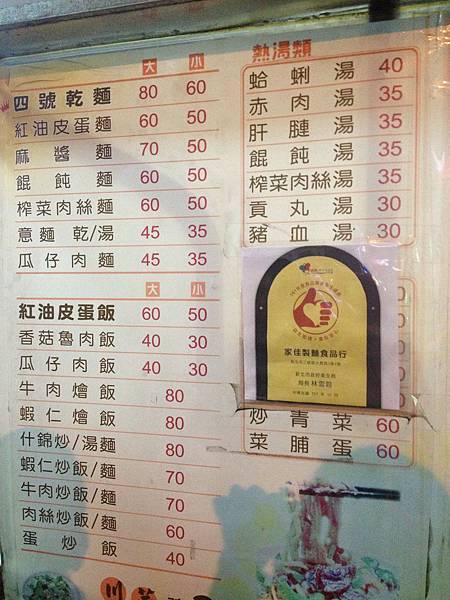 大 小
四號乾麵 80 60
紅油皮蛋麵 60 50
麻醬麵 70 50
餛飩麵 60 50
榨菜肉絲麵 60 50
意麵 乾/湯 45 35
瓜仔肉麵 45 35
大 小
紅油皮蛋飯 60 50
香菇魯肉飯 40 30
瓜仔肉飯 40 30
牛肉燴飯 80
蝦仁燴飯 80
什錦炒/湯麵 80
蝦仁炒飯/麵 70
牛肉炒飯/麵 70
肉絲炒飯/麵 60
蛋炒飯 40
熱湯類
蛤蜊湯 40
赤肉湯 35
肝腱湯 35
餛飩湯 35
榨菜肉絲湯 35
貢丸湯 30
豬血湯 30
家佳製麵食品行
局長 林雪蓉
炒青菜 60
菜脯蛋 60